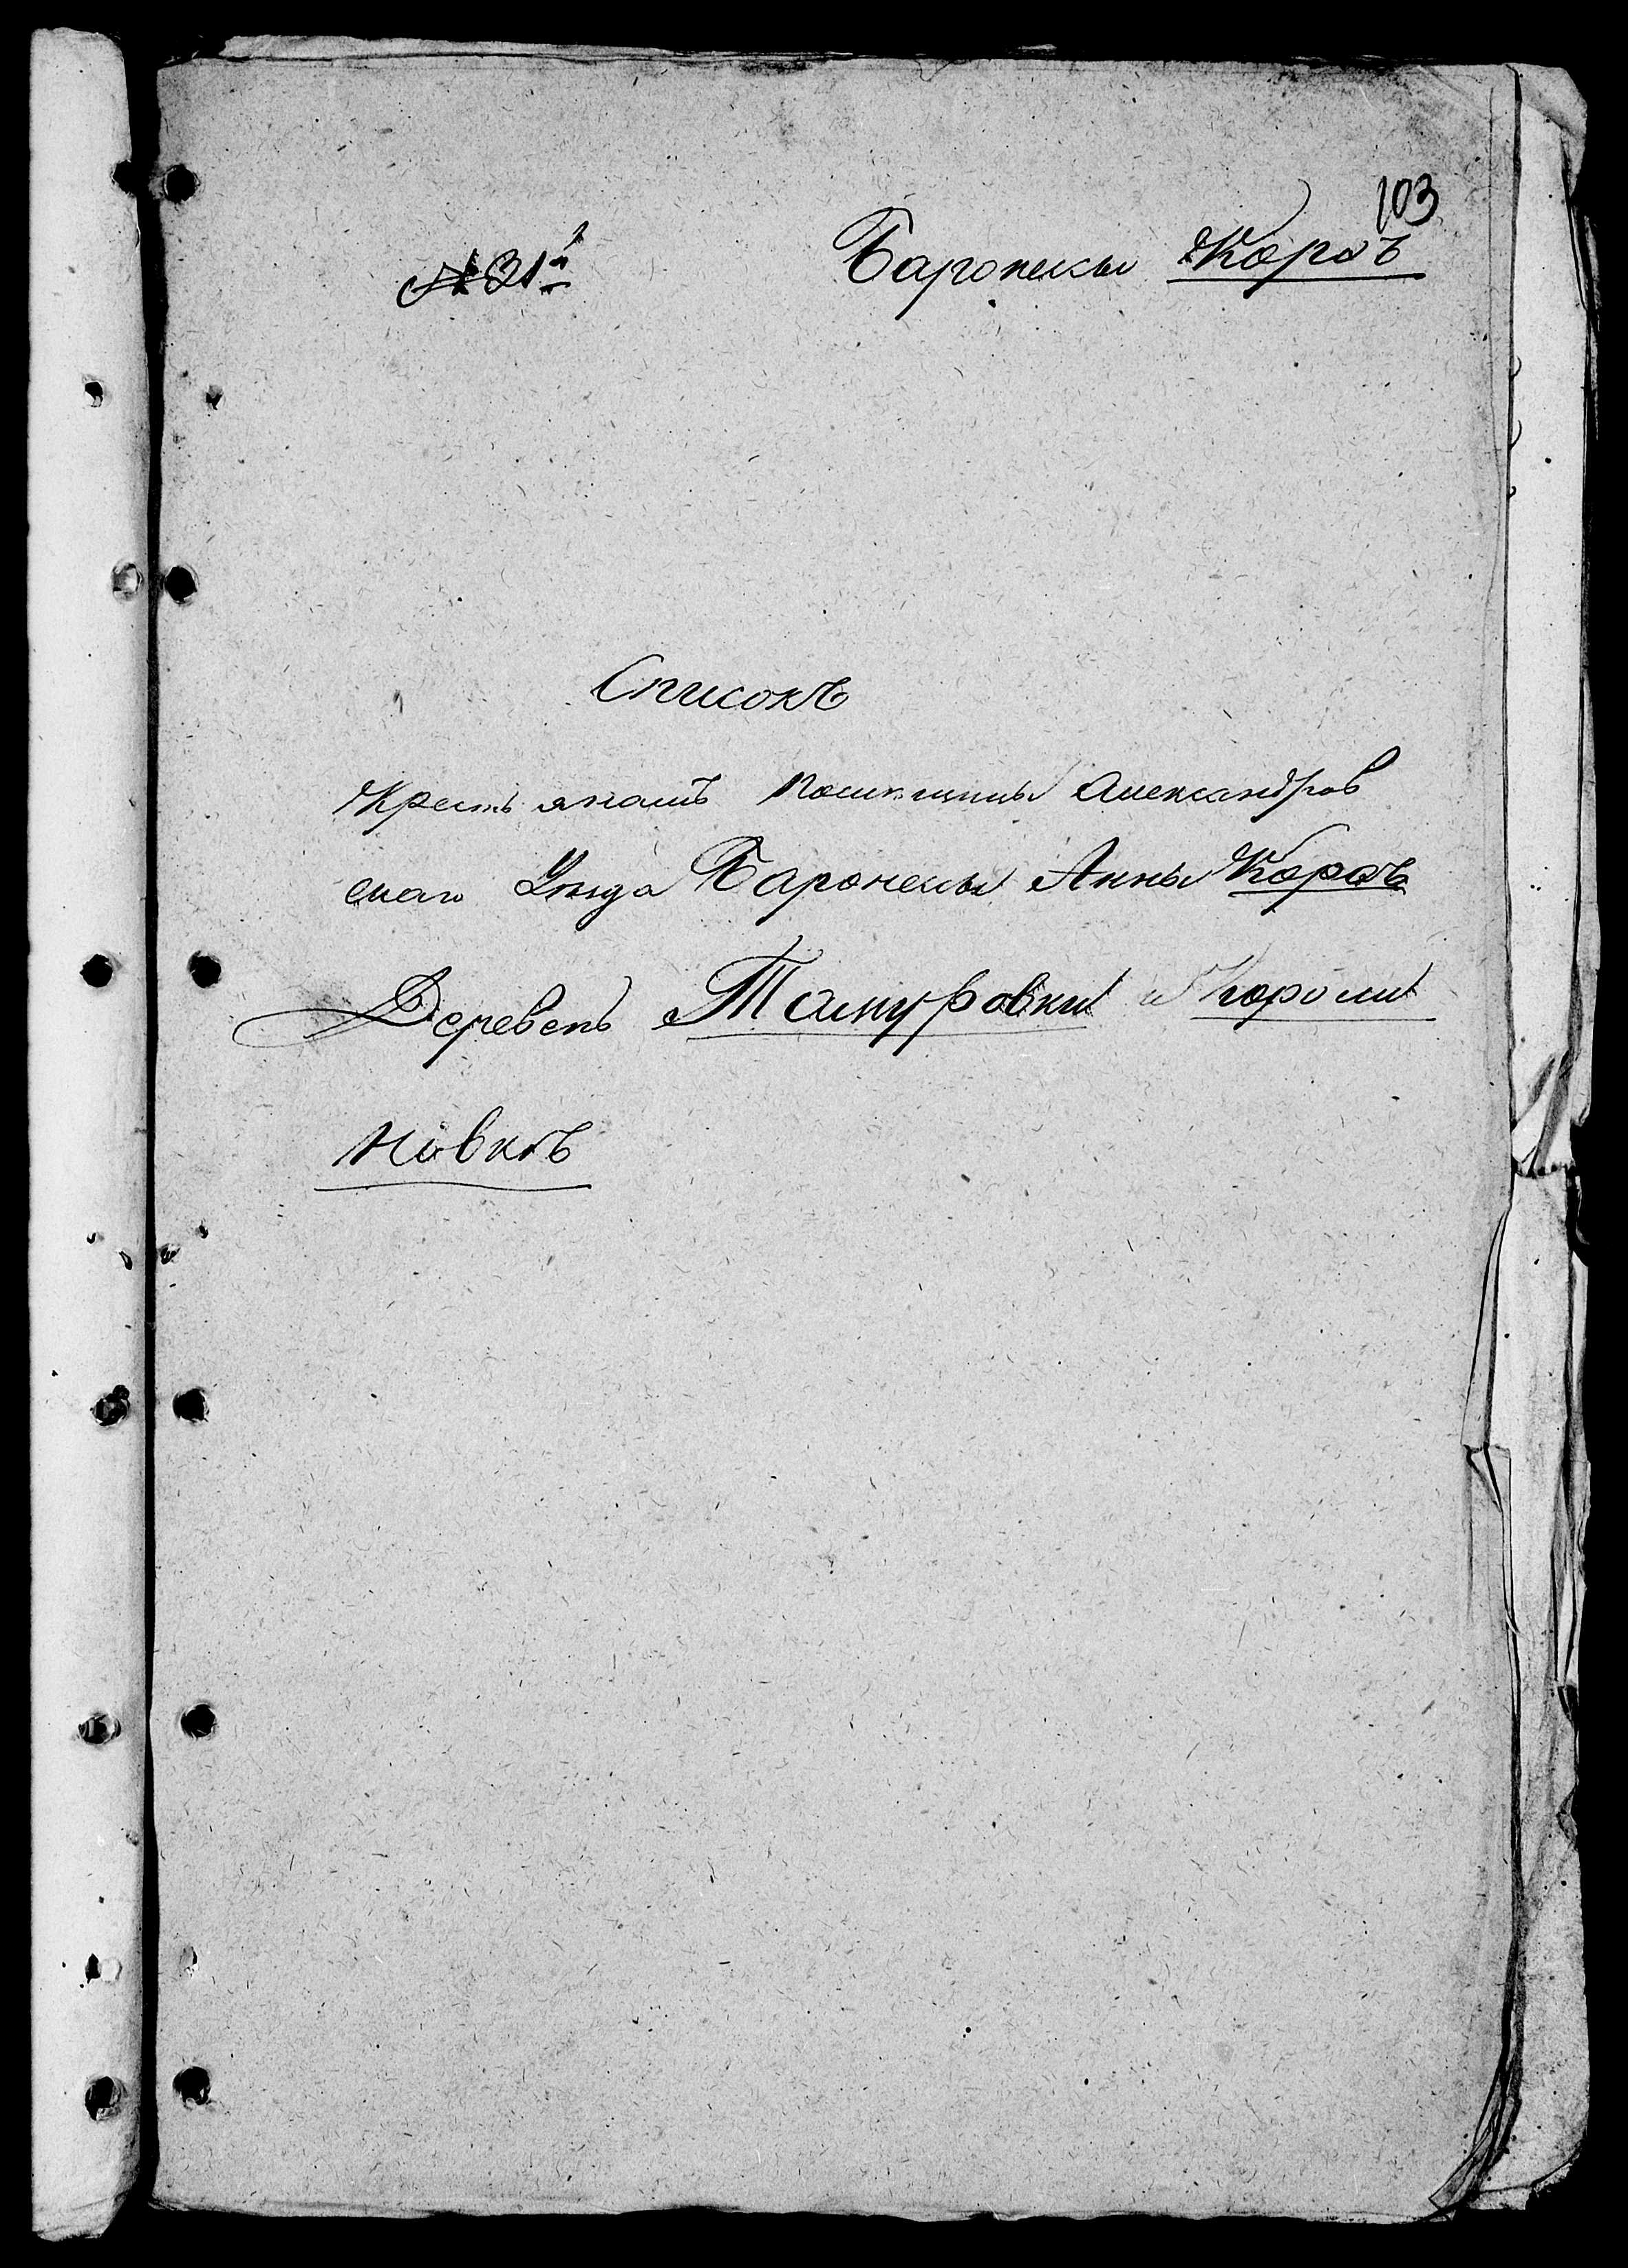 103
№ 31й
Баронесы Корфъ
Списокъ
Крестьянамъ Помѣщицы Александров
скаго Уѣзда Баронесы Анны Корфъ
Деревень Тимуровки и Короми
новкѣ